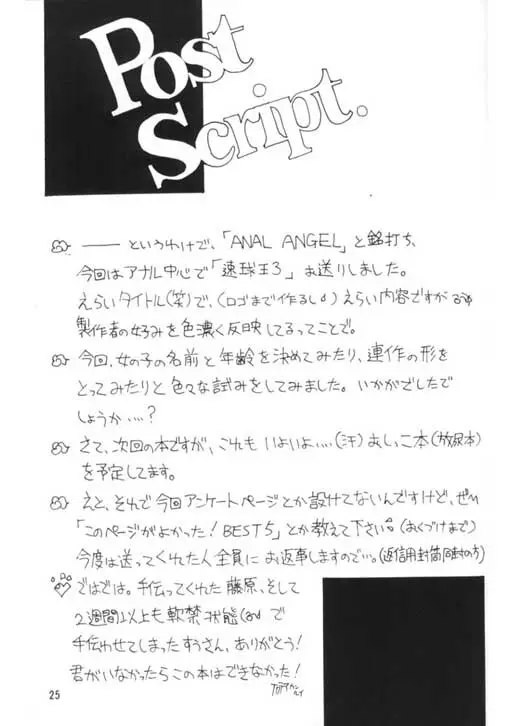 Post
Script.
── というわけで、「ANAL ANGEL」と銘打ち、
今回はアナル中心で「速球王3」お送りしました。
えらいタイトル(笑)で、(ロゴまで作るし) えらい内容ですが
製作者の好みを色濃く反映してるってことで。
今回、女の子の名前と年齢を決めてみたり、連作の形を
とってみたりと色々な試みをしてみました。いかがでしたで
しょうか‥‥?
さて、次回の本ですが、これも いよいよ‥‥(汗) おしっこ本(放尿本)
を予定してます。
えと、それで今回アンケートページとか設けてないんですけど、ぜひ
「このページがよかった! BEST5」とか教えて下さい。(おくづけまで)
今度は送ってくれた人全員に お返事しますので…。(返信用封筒同封の方)
ではでは。手伝ってくれた 藤原、そして
2週間以上も軟禁状態 で
手伝わせてしまったすうさん、ありがとう!
君がいなかったらこの本はできなかった!
25